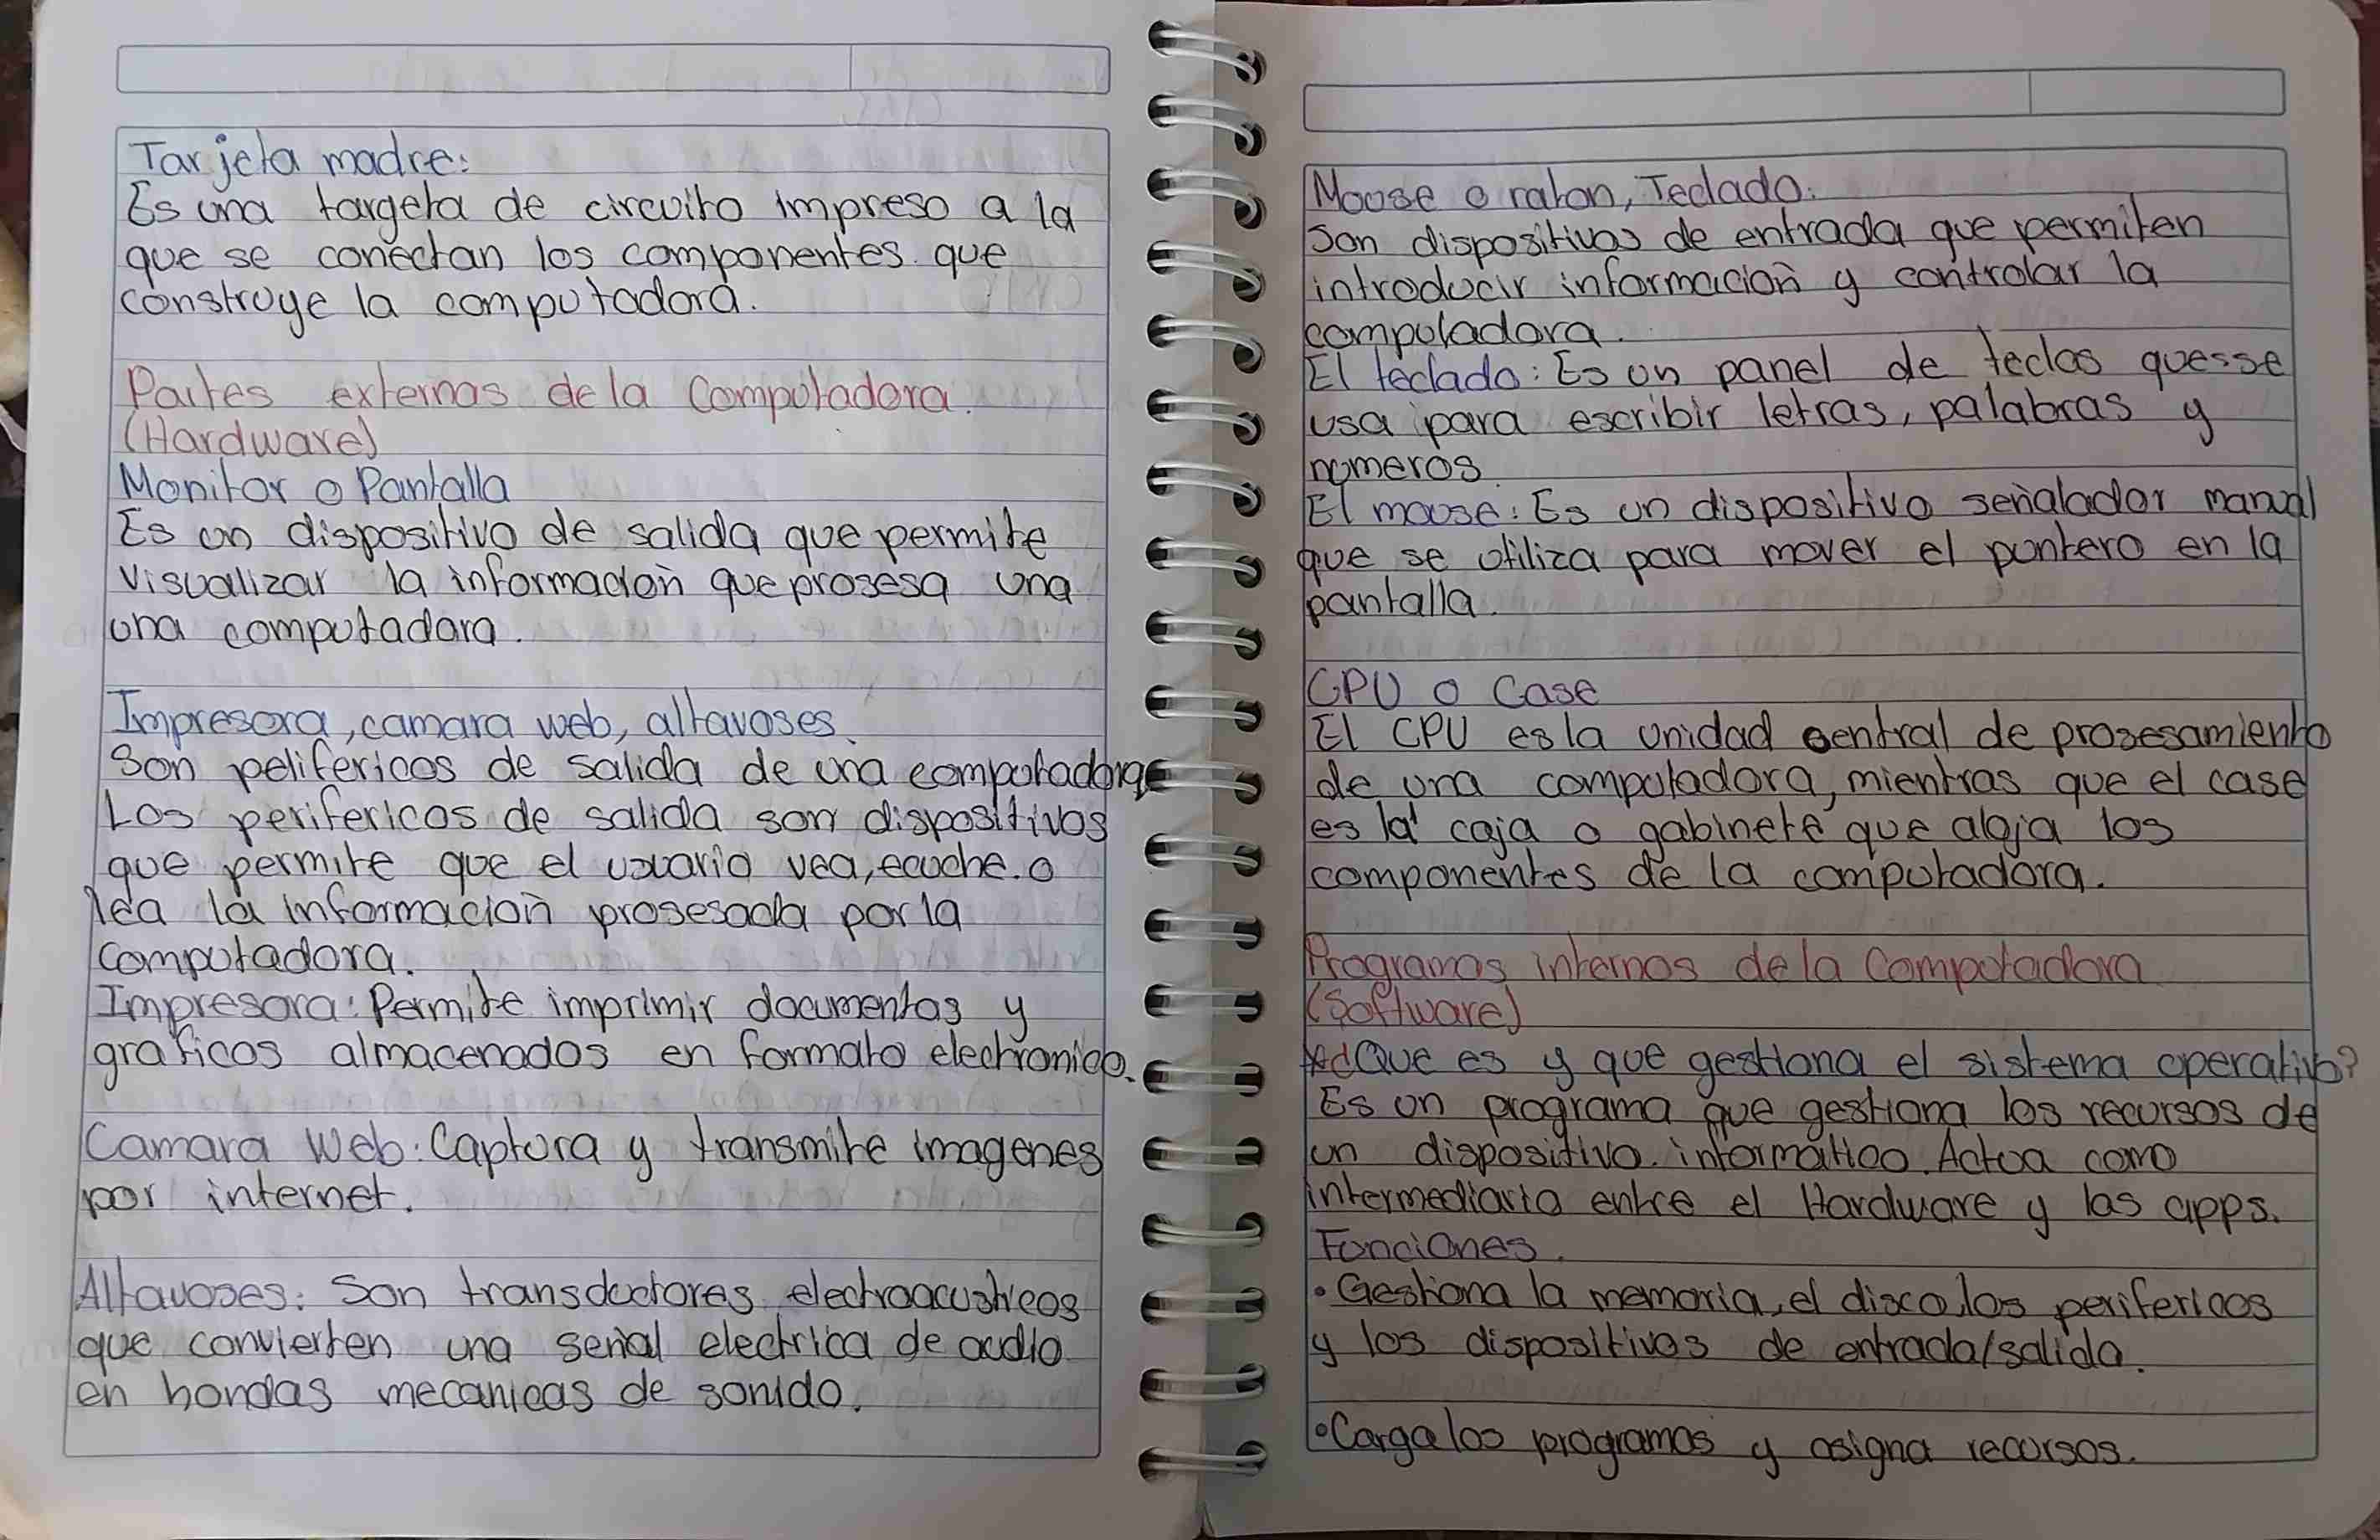 Tarjeta madre:
Es una targeta de circuito impreso a la
que se conectan los componentes que
construye la computadora.
Partes externas de la Computadora.
(Hardware)
Monitor o Pantalla
Es un dispositivo de salida que permite
visualizar la información que prosesa una
una computadora.
Impresora, camara web, altavoses.
Son pelifericos de salida de una computadora
Los perifericos de salida son dispositivos
que permite que el usuario vea, ecuche o
lea la información prosesada por la
computadora.
Impresora: Permite imprimir documentos y
graficos almacenados en formato electronico.
Camara Web: Captura y transmite imagenes
por internet.
Altavoses: Son transductores electroacusticos
que convierten una señal electrica de audio
en hondas mecanicas de sonido.
Moose o raton, Teclado:
Son dispositivos de entrada que permiten
introducir información y controlar la
computadora.
El teclado: Es un panel de teclas que se
usa para escribir letras, palabras y
numeros.
El mouse: Es un dispositivo señalador manual
que se utiliza para mover el puntero en la
pantalla.
CPU o Case
El CPU es la unidad central de prozesamiento
de una computadora, mientras que el case
es la caja o gabinete que aloja los
componentes de la computadora.
Programas internos de la Computadora
(Software)
¿Que es y que gestiona el sistema operativo?
Es un programa que gestiona los recursos de
un dispositivo informático. Actua como
intermediario entre el Hardware y las apps.
Funciones.
• Gestiona la memoria, el disco, los perifericos
y los dispositivos de entrada/salida.
• Carga los programas y asigna recursos.